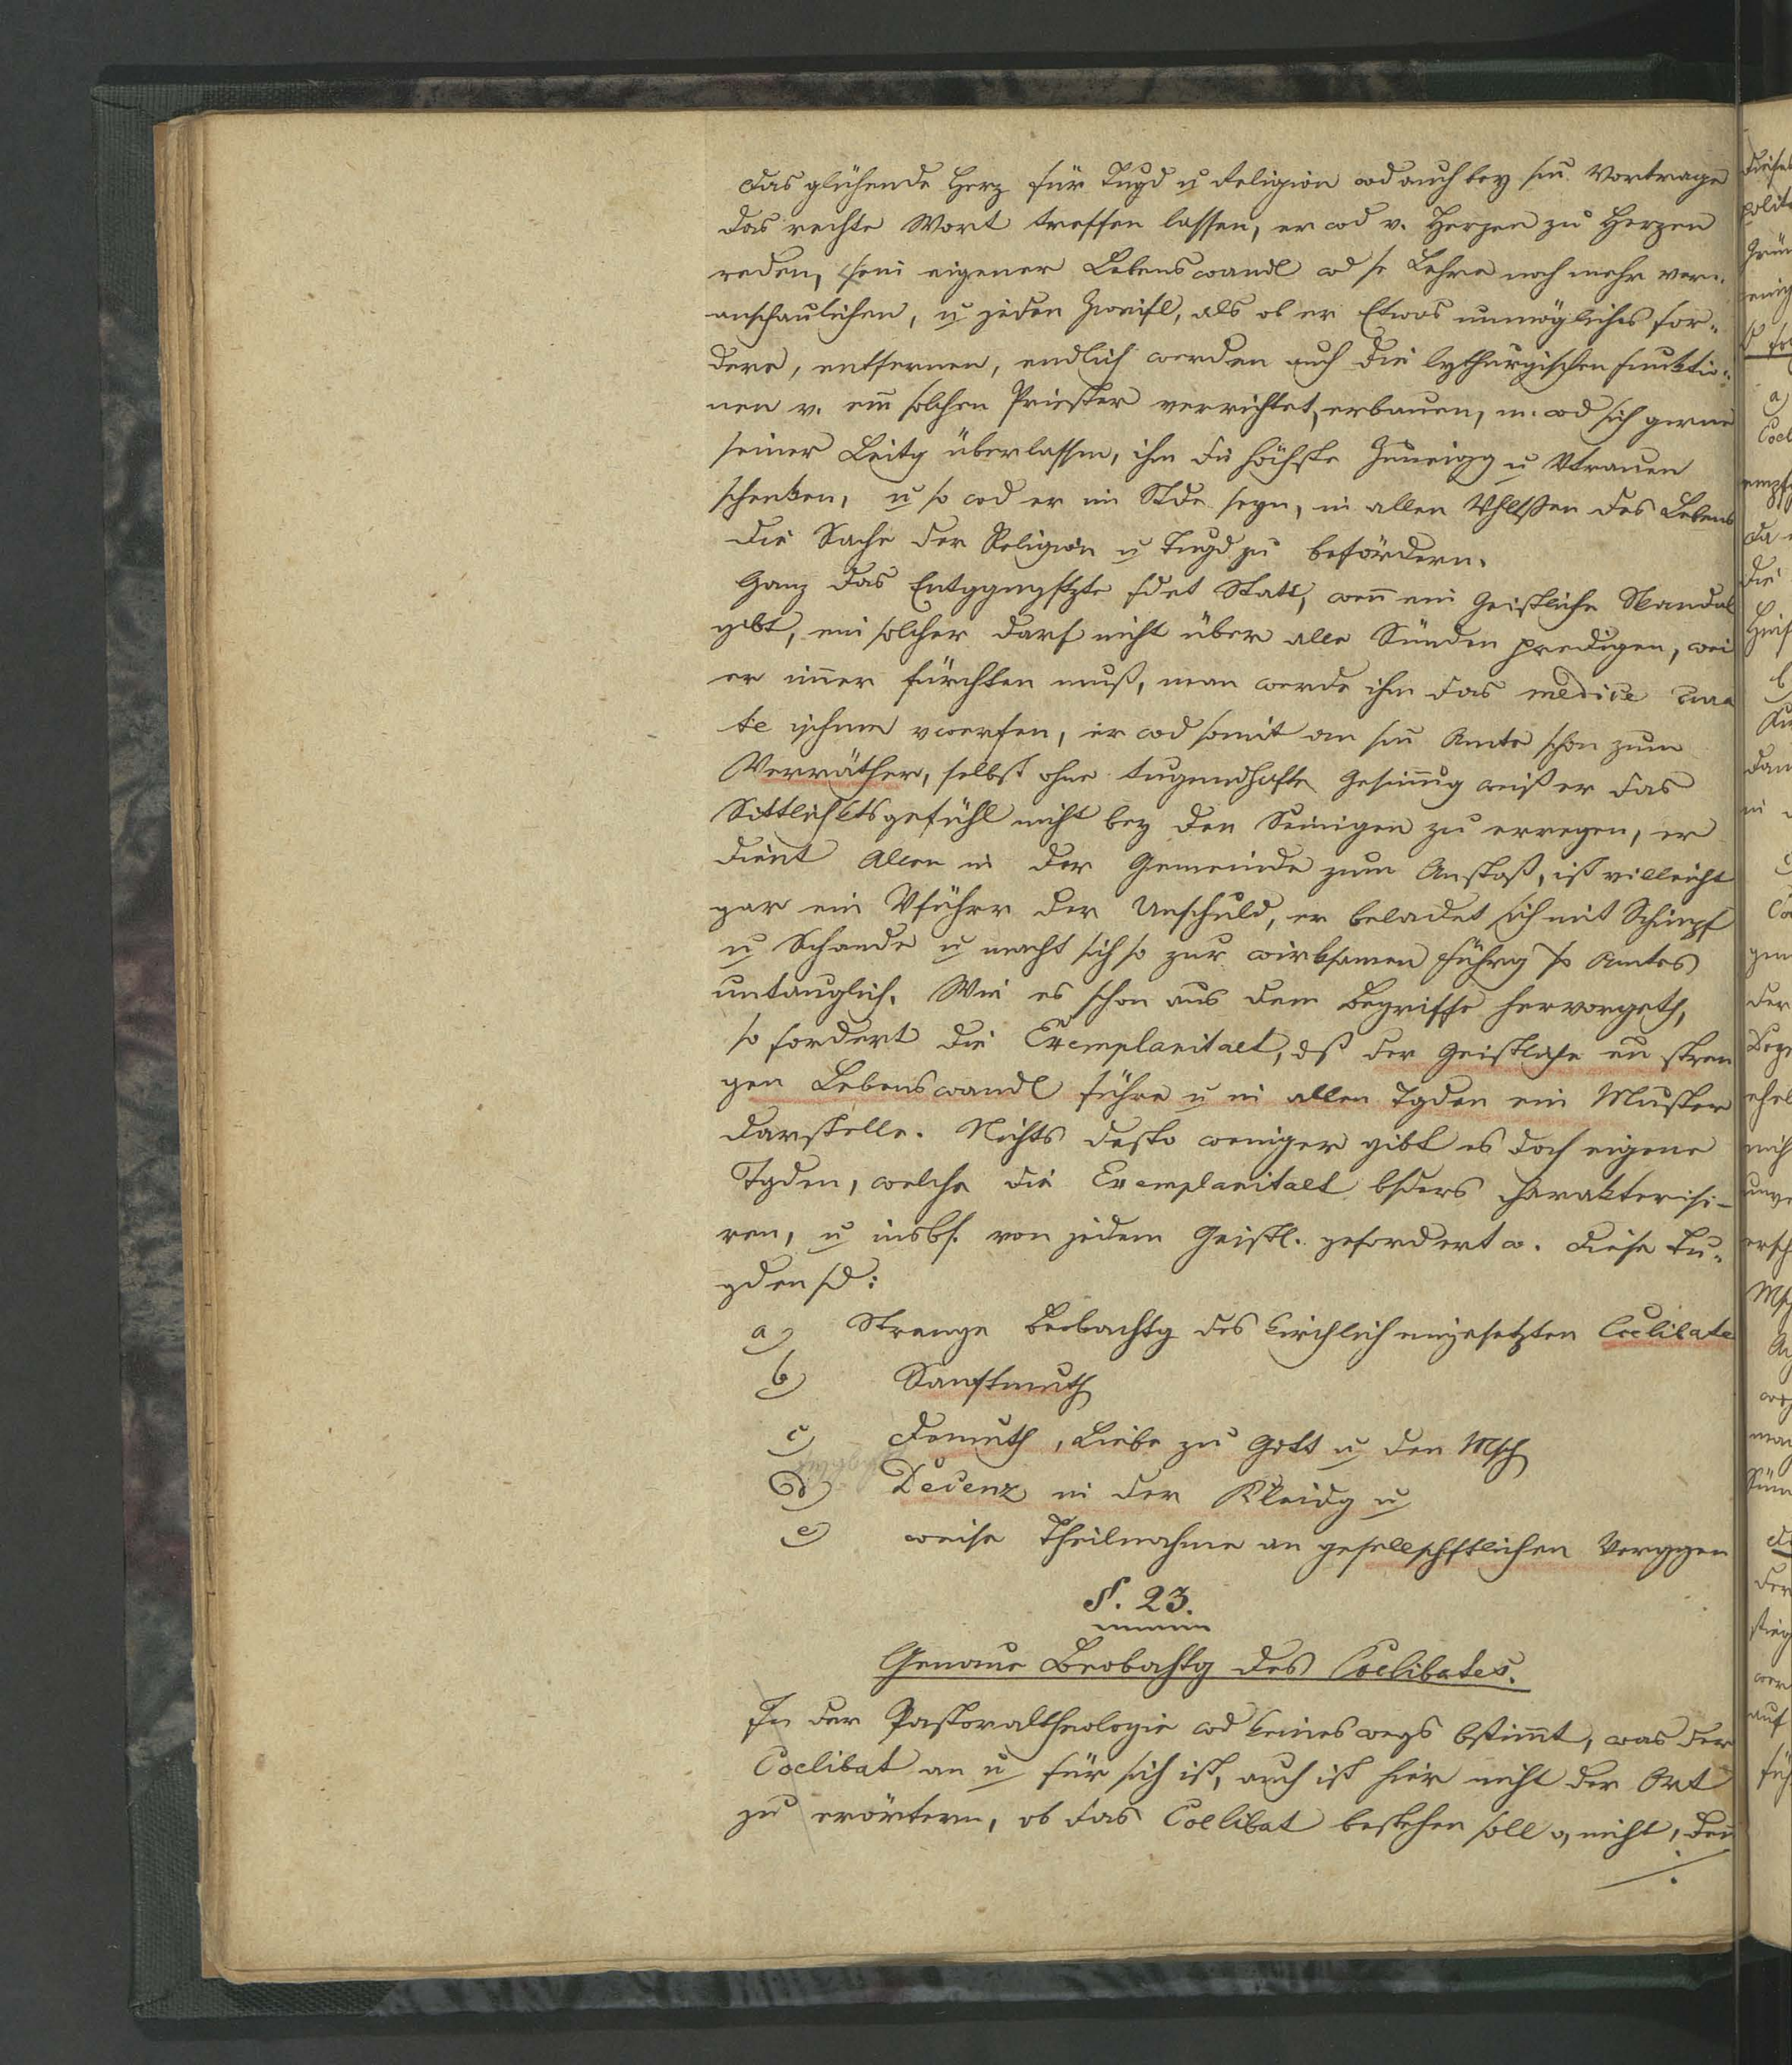 das glühende Herz für Tugd u Religion wd auch bey sm Vortrage
das rechte Wort treffen lassen, er wd v. Herzen zu Herzen
reden, sein eigener Lebenswandl wd se Lehre noch mehr ver-
anschaulichen, u jeden Zweifl, als ob er Etwas unmögliches for-
dere, entfernen, endlich werden auch die lythurgischen Funktio-
nen v. em solchen Priester verrichtet, erbauen, m. wd sich gerne
seiner Leitg überlassen, ihm die höchste Zuneigg u Vtrauen
schenken, u so wd er im Stde seyn, in allen Vhltssen des Lebens
die Sache der Religion u Tugd zu befördern.
Ganz das Entggngstzte fdet Statt, wenn ein Geistliche Skandal
gibt, ein solcher darf nicht über alle Sünden predigen, weil
er imer fürchten muß, man werde ihm das medice cura
te ipsum vwerfen, er wd somit an sm Amte schon zum
Verräther, selbst ohne tugendhafte Gesinnug weiß er das
Sittlichktsgefühl nicht bey den Seinigen zu erregen, er
dient Allen in der Gemeinde zum Anstoß, ist villeicht
gar ein Vführer der Unschuld, er beladet sich mit Schimpf
u Schande u macht sich so zur wirksamen Führg ss Amtes
untauglich. Wie es schon aus dem Begriffe hervorgeth,
so fordert die Exemplaritaet, dß der Geistliche en stren
gen Lebenswandl führe u in allen Tgden ein Muster
darstelle. Nichts desto weniger gibt es doch eigene
Tgden, welche die Exemplaritaet bsders charakterisi-
ren, u insbs. von jedem Geistl. gefordert w. Diese Tu-
gden sd:
a) Strenge Beobachtg des kirchlich eingesetzten Coelibate
b) Sanftmuth
c) Demuth, Liebe zu Gott u den Msch
d) Decenz in der Kleidg u
e) weise Theilnahme an gesellschftlichen Verggen
§. 23.
Genaue Beobachtg des Coelibates.
In der Pastoraltheologie wd keineswegs bstimmt, was der
Coelibat an u für sich ist, auch ist hier nicht der Ort
zu erörtern, ob das Coelibat bestehen soll o, nicht, den